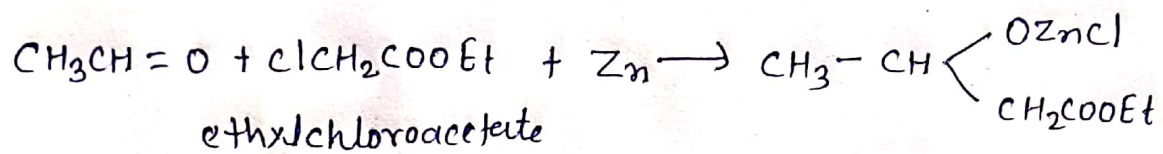 CH₃CH = O + ClCH₂COOEt + Zn → CH₃ - CH < OZnCl
CH₂COOEt
ethylchloroacetate